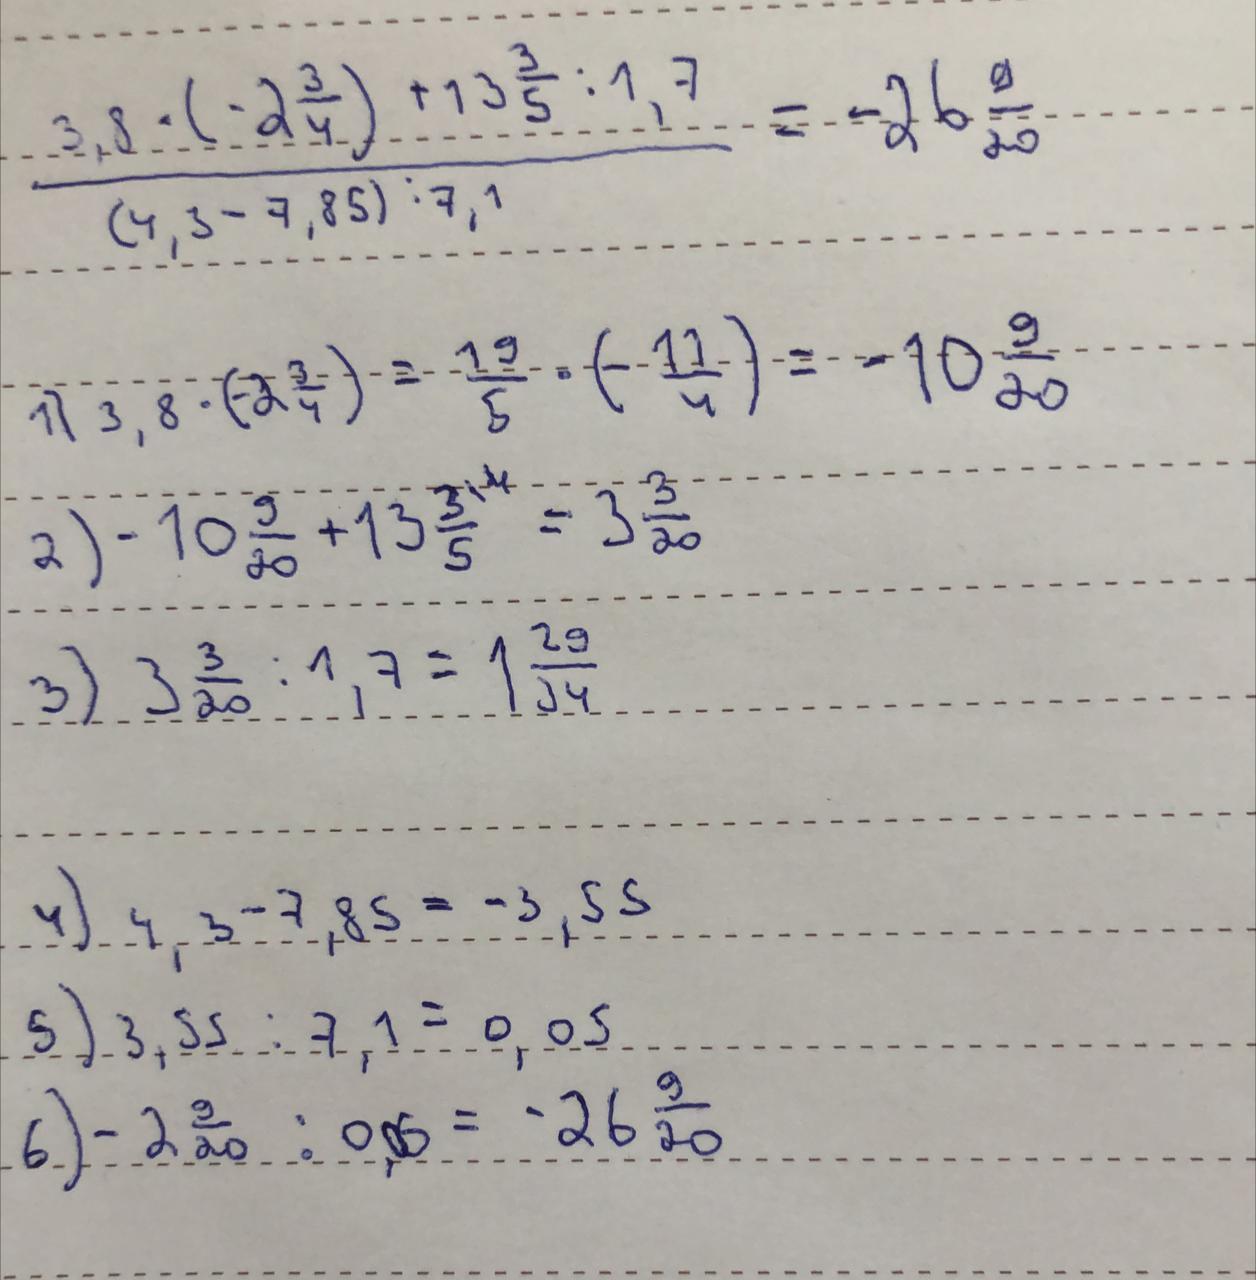 (3,8·(-2 3/4)+13 3/5:1,7)/((4,3-7,85):7,1) = -26 9/20
1) 3,8·(-2 3/4) = 19/5·(-11/4) = -10 9/20
2) -10 9/20+13 3/5 ·4 = 3 3/20
3) 3 3/20 : 1,7 = 1 29/34
4) 4,3-7,85 = -3,55
5) 3,55 : 7,1 = 0,05
6) -2 9/20 : = -26 9/20